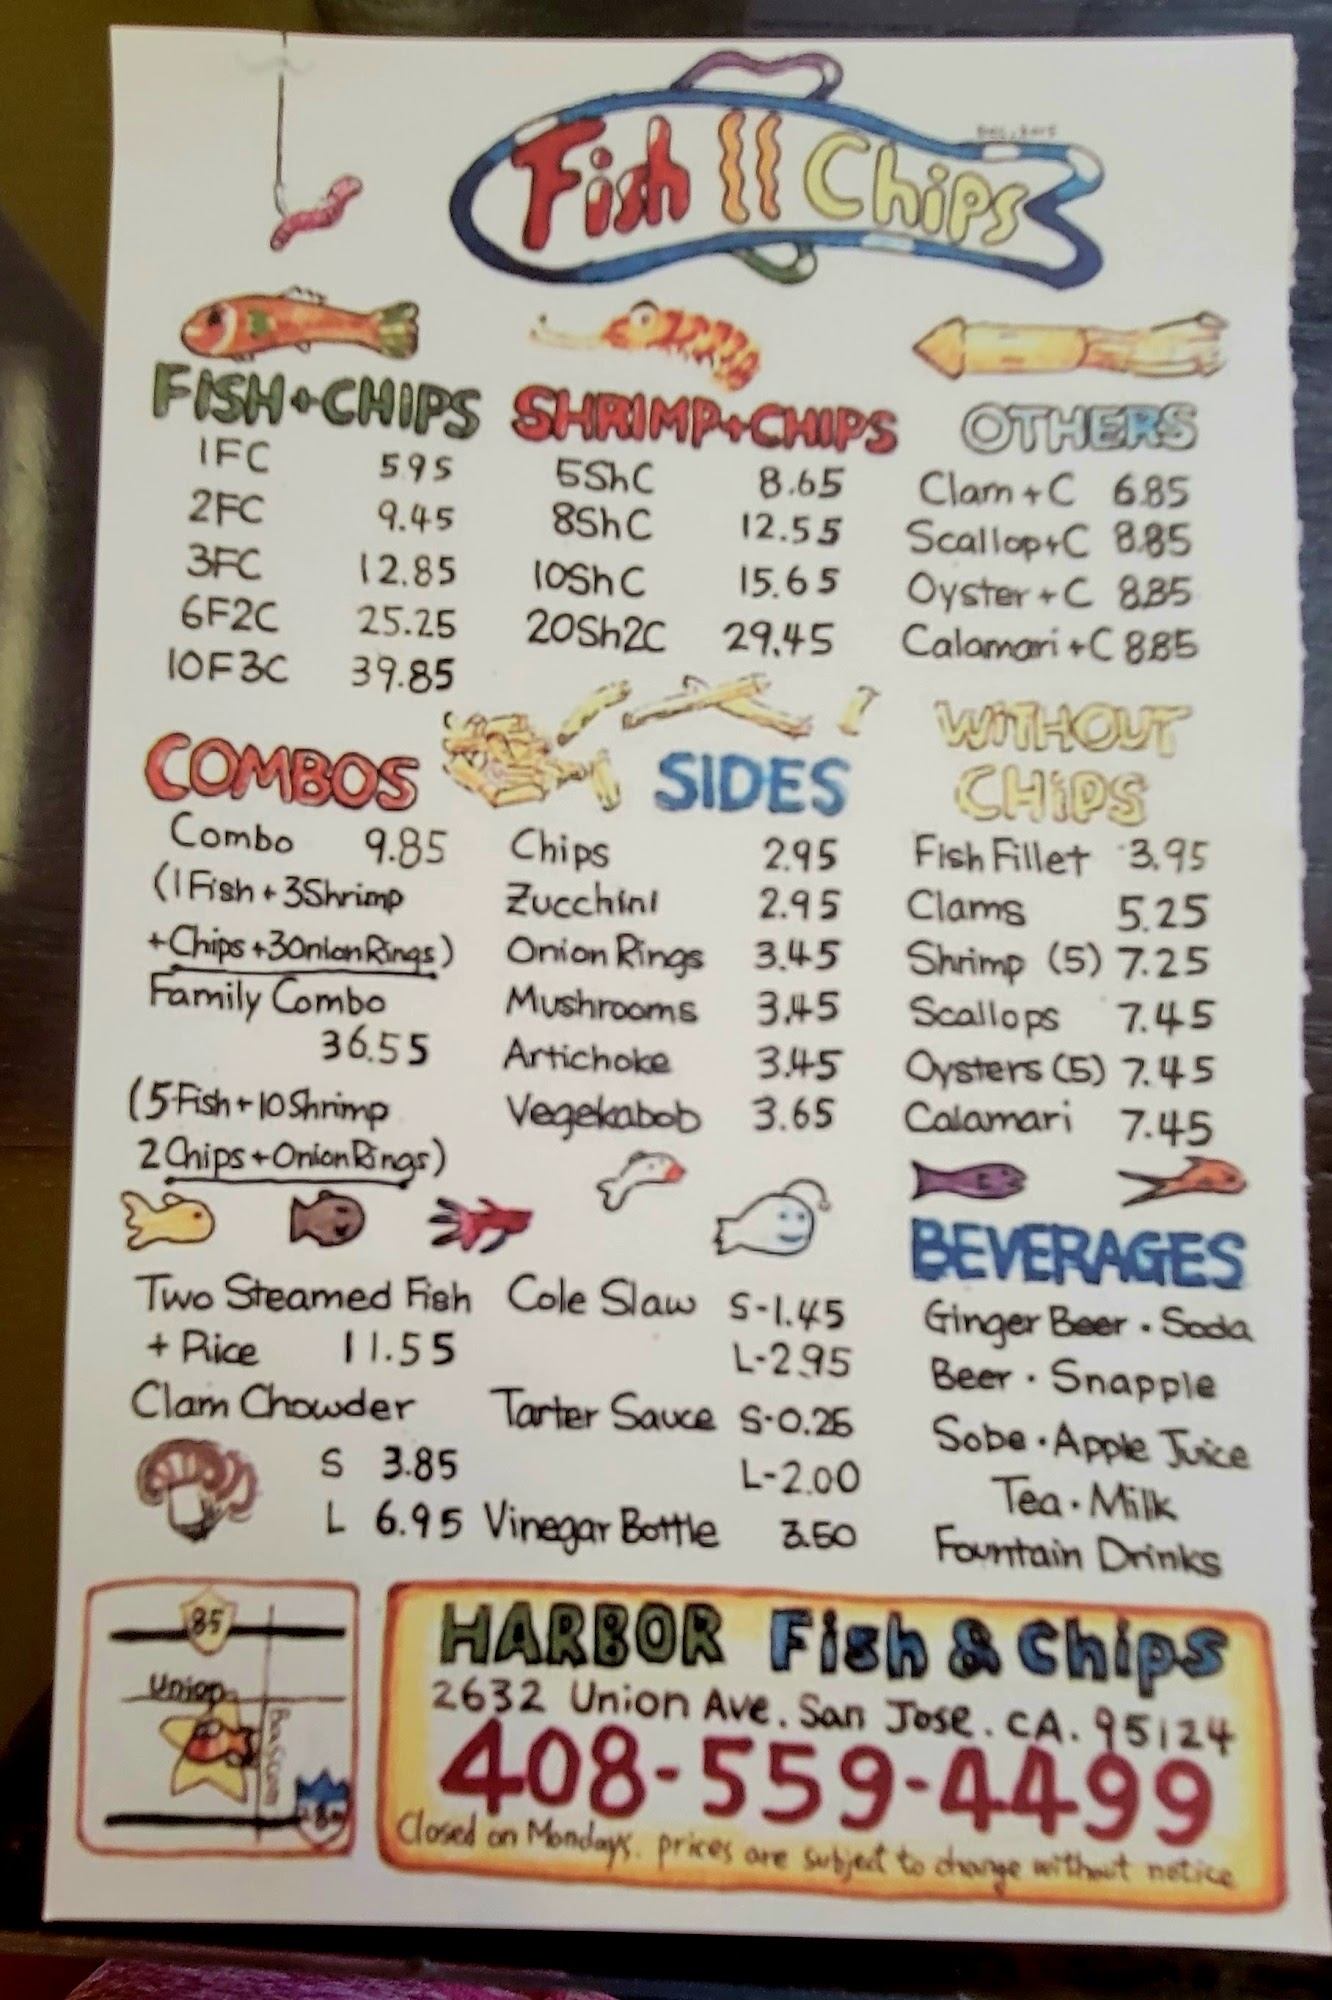 Fish Chips
FISH+CHIPS
1FC 5.95
2FC 9.45
3FC 12.85
6F2C 25.25
10F3C 39.85
SHRIMP+CHIPS
5ShC 8.65
8ShC 12.55
10ShC 15.65
20Sh2C 29.45
OTHERS
Clam+C 6.85
Scallop+C 8.85
Oyster+C 8.85
Calamari+C 8.85
COMBOS
Combo 9.85
(1Fish+3Shrimp
+Chips+3OnionRings)
Family Combo
36.55
(5Fish+10Shrimp
2Chips+OnionRings)
SIDES
Chips 2.95
Zucchini 2.95
Onion Rings 3.45
Mushrooms 3.45
Artichoke 3.45
Vegekabob 3.65
WITHOUT
CHIPS
Fish Fillet 3.95
Clams 5.25
Shrimp (5) 7.25
Scallops 7.45
Oysters (5) 7.45
Calamari 7.45
Two Steamed Fish
+ Rice 11.55
Clam Chowder
S 3.85
L 6.95
Cole Slaw S-1.45
L-2.95
Tarter Sauce S-0.25
L-2.00
Vinegar Bottle 3.50
BEVERAGES
Ginger Beer · Soda
Beer · Snapple
Sobe · Apple Juice
Tea · Milk
Fountain Drinks
85
Union
Bascom
HARBOR Fish & Chips
2632 Union Ave. San Jose. CA. 95124
408-559-4499
Closed on Mondays. prices are subject to change without notice